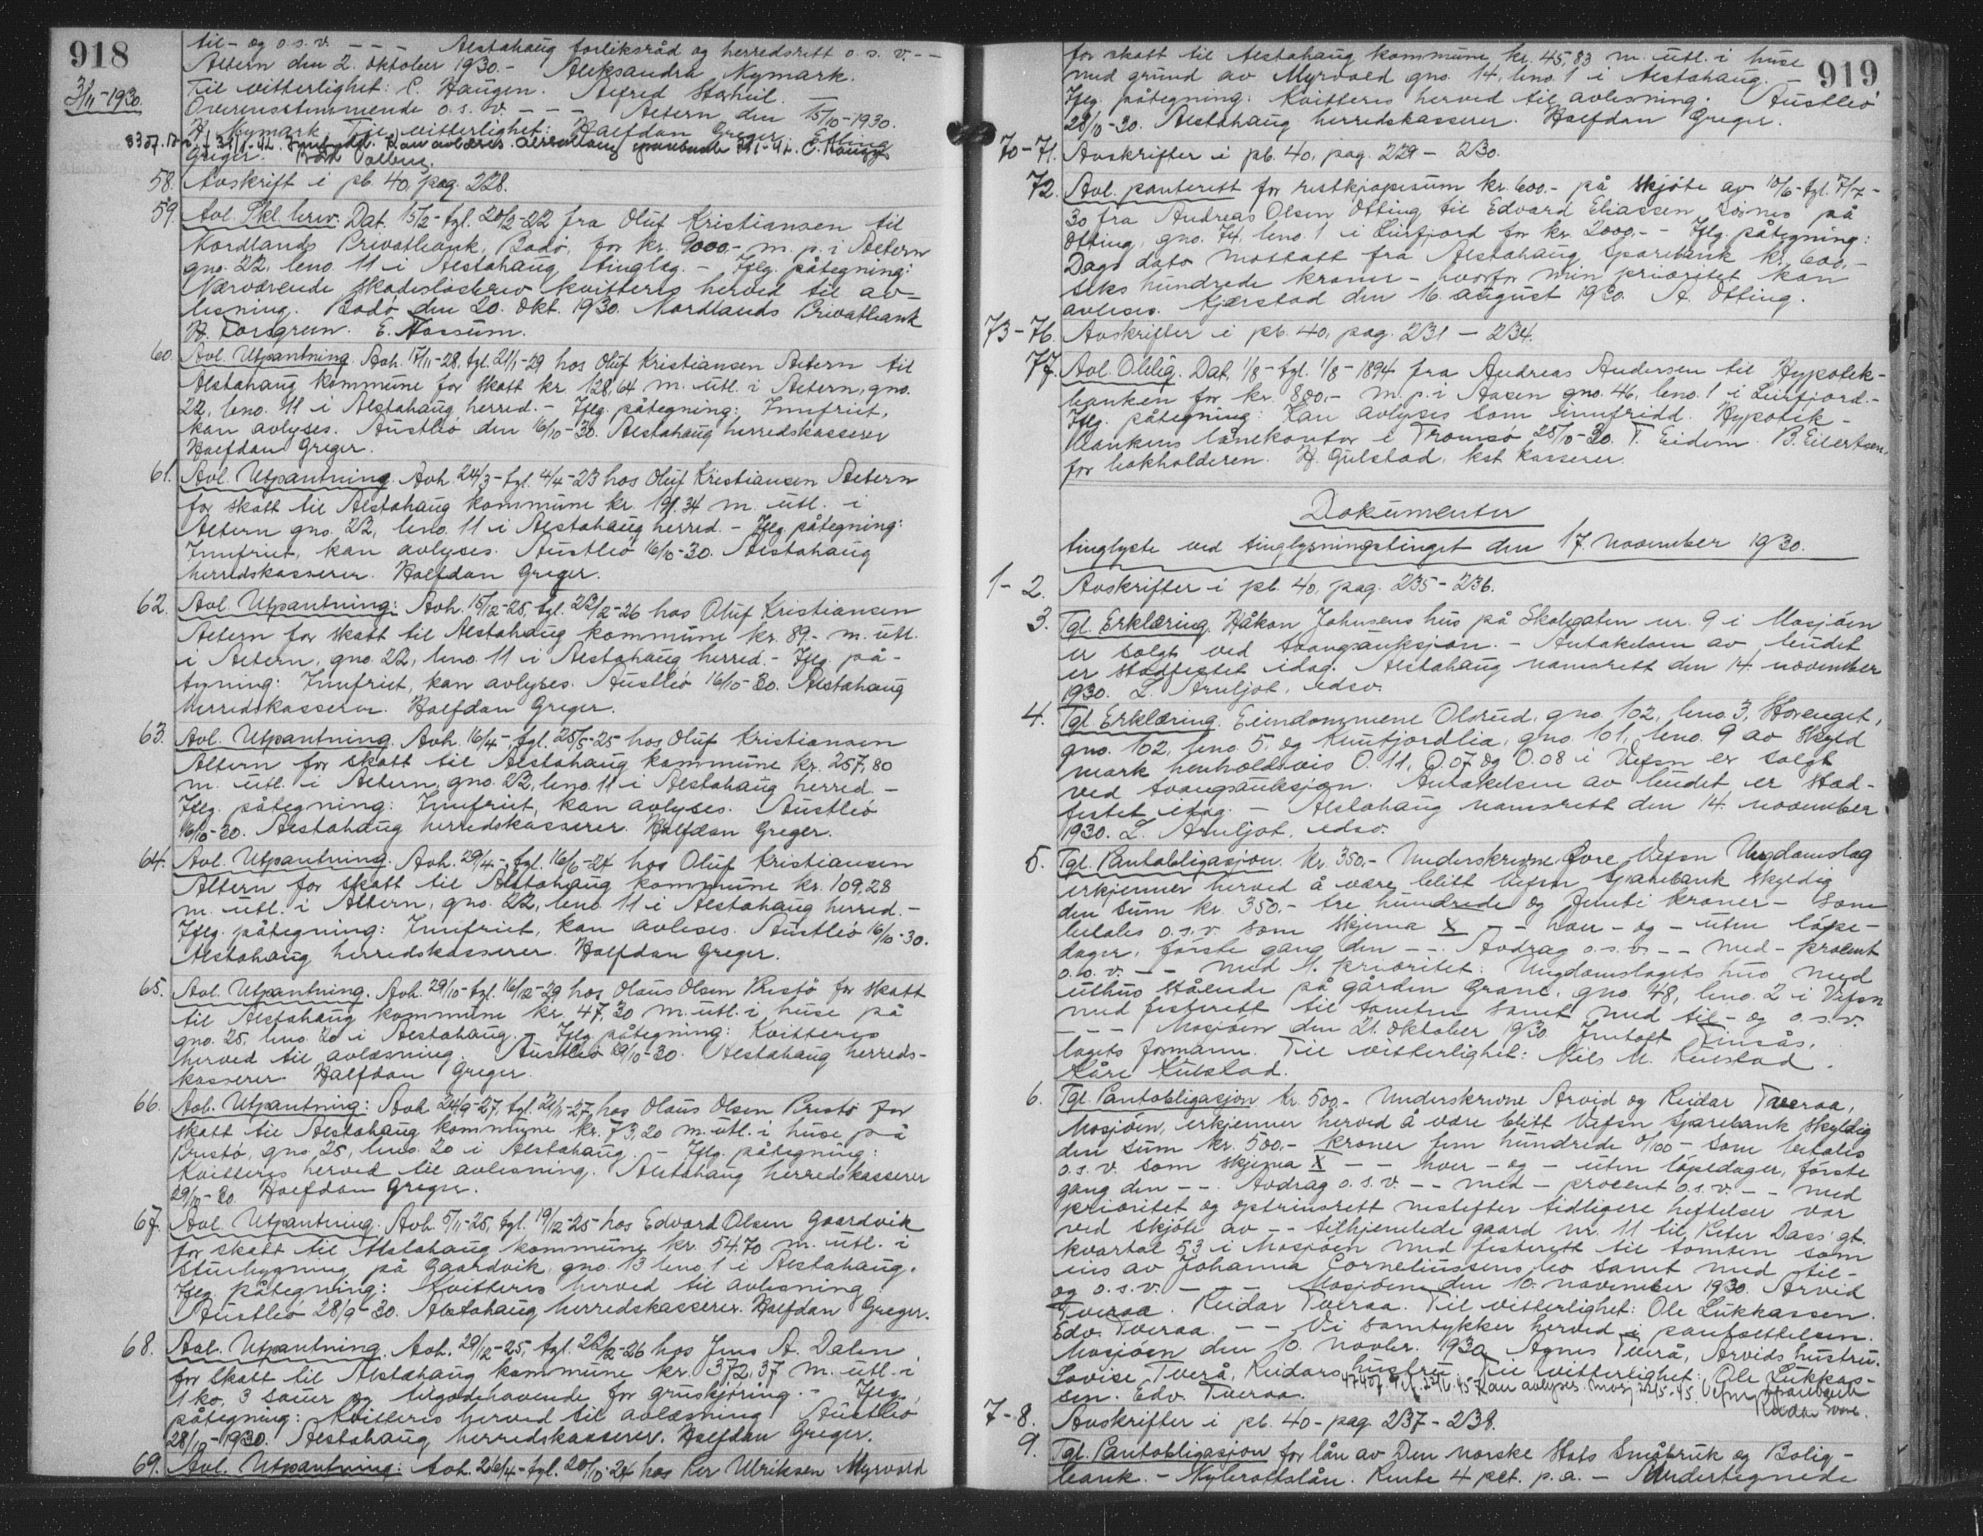 918
3/11-1930.
til- og o.s.v. - - - Alstahaug forliksråd og herredsrett o.s.v. - -
Altern den 2. oktober 1930. - Aleksandra Nymark.
Til vitterlighet: C. Haugen. Alfred Storhul.
Overensstemmende o.s.v. - - - Altern den 15/10-1930.
H. Nymark. Til vitterlighet: Halfdan Greger. Erling
Greger.
58. Avskrift i pb. 40, pag. 228.
59. Avl. Skl. brev. Dat. 15/2-tgl. 20/2-22 fra Oluf Kristiansen til
Nordlands Privatbank, Bodö, for kr. 9000.- m. p. i Altern
gno. 22, bno. 11 i Alstahaug tinglag. - Iflg. påtegning:
Nærværende skadeslösbrev kvitteres herved til av-
lesning. Bodö den 20. okt. 1930. Nordlands Privatbank
H. Torsgren. E. Mossum.
60. Avl. Utpantning. Avh. 17/11-28. tgl. 21/1-29 hos Oluf Kristiansen Altern til
Alstahaug kommune for skatt kr. 128,64 m. utl. i Altern, gno.
22, bno. 11 i Alstahaug herred. - Iflg. påtegning: Innfriet,
kan avlyses. Austbö den 16/10-30. Alstahaug herredskasserer
Halfdan Greger.
61. Avl. Utpantning. Avh. 24/3-tgl. 4/4-23 hos Oluf Kristiansen Altern
for skatt til Alstahaug kommune kr. 191.34 m. utl. i
Altern gno. 22, bno. 11 i Alstahaug herred. - Iflg. påtegning:
Innfriet, kan avlyses. Austbö 16/10-30. Alstahaug
herredskasserer. Halfdan Greger.
62. Avl. Utpantning: Avh. 15/12-25, tgl. 23/2-26 hos Oluf Kristiansen
Altern for skatt til Alstahaug kommune kr. 89.- m. utl.
i Altern, gno. 22, bno. 11 i Alstahaug herred. - Iflg. på-
tegning: Innfriet, kan avlyses. Austbö 16/10-30. Alstahaug
herredskasserer. Halfdan Greger.
63. Avl. Utpantning. Avh. 16/4-tgl. 25/5-25 hos Oluf Kristiansen
Altern for skatt til Alstahaug kommune kr. 257,80
m. utl. i Altern, gno. 22, bno. 11 i Alstahaug herred. -
Iflg. påtegning: Innfriet, kan avlyses. Austbö
16/10-30. Alstahaug herredskasserer. Halfdan Greger.
64. Avl. Utpantning. Avh. 29/4-tgl. 16/6-24 hos Oluf Kristiansen
Altern for skatt til Alstahaug kommune kr. 109.28
m. utl. i Altern, gno. 22, bno. 11 i Alstahaug herred. -
Iflg. påtegning: Innfriet, kan avleses. Austbö 16/10-30.
Alstahaug herredskasserer. Halfdan Greger.
65. Avl. Utpantning. Avh. 29/10-tgl. 16/12-29 hos Olaus Olsen Prestö for skatt
til Alstahaug kommune kr. 47,30 m. utl. i huse på
gno. 25, bno. 20 i Alstahaug. - Iflg. påtegning: Kvitteres
herved til avlæsning. Austbö 29/10-30. Alstahaug herreds-
kasserer Halfdan Greger.
66. Avl. Utpantning: Avh. 24/9-27, tgl. 21/11-27 hos Olaus Olsen Prestö for
skatt til Alstahaug kommune kr. 73,20 m. utl. i huse på
Prestö, gno. 25, bno. 20 i Alstahaug. - Iflg. påtegning:
Kvitteres herved til avlesning. Alstahaug herredskasserer
29/10-30. Halfdan Greger.
67. Avl. Utpantning. Avh. 5/11-25, tgl. 19/12-25 hos Edvard Olsen Gaardvik
for skatt til Alstahaug kommune kr. 54.70 m. utl. i
stuebygning på Gaardvik, gno. 13 bno. 1 i Alstahaug.
Iflg. påtegning: Kvitteres herved til avlesning
Austbö 28/9-30. Alstahaug herredskasserer. Halfdan Greger.
68. Avl. Utpantning. Avh. 29/12-25, tgl. 23/2-26 hos Jens A. Dalen
for skatt til Alstahaug kommune kr. 372,37 m. utl. i
1 ko, 3 sauer og tilgodehavende for gruskjöring. - Iflg.
påtegning: Kvitteres herved til avlæsning. Austbö
28/10-1930. Alstahaug herredskasserer. Halfdan Greger.
69. Avl. Utpantning: Avh. 26/4-tgl. 20/10-24 hos Per Ulriksen Myrvold
919
for skatt til Alstahaug kommune kr. 45,83 m. utl. i huse
med grund av Myrvold gno. 14, bno. 1 i Alstahaug. -
Iflg. påtegning: Kvitteres herved til avlesning. Austbö
29/10-30. Alstahaug herredskasserer. Halfdan Greger.
70-71. Avskrifter i pb. 40, pag. 229 - 230.
72. Avl. panterett for restkjøpesum kr. 600.- på skjöte av 10/6-tgl. 7/7-
30 fra Andreas Olsen Otting til Edvard Eliassen, Sörnes på
Otting, gno. 74, bno. 1 i Leirfjord for kr. 2000.- - Iflg. påtegning:
Dags dato mottatt fra Alstahaug Sparebank kr. 600,-
seks hundrede kroner - hvorfor min prioritet kan
avleses. Kjærstad den 16. august 1930. A. Otting.
73-76. Avskrifter i pb. 40, pag. 231 - 234.
77. Avl. Oblig. Dat. 1/8-tgl. 1/8-1894 fra Andreas Andersen til Hypotek-
banken for kr. 800.- m. p. i Aasen gno. 46, bno. 1 i Leirfjord. -
Iflg. påtegning: Kan avlyses som innfridd. Hypotek-
bankens lånekontor i Tromsö 25/10-30. T. Eidem. B. Eilertsen,
for bokholderen. H. Gulstad, kst. kasserer.
Dokumenter
tinglyste ved tinglysningstinget den 17. november 1930.
1-2. Avskrifter i pb. 40, pag. 235 - 236.
3. Tgl. Erklæring. Håkon Johnsens hus på Skolegaten nr. 9 i Mosjöen
er solgt ved tvangsauksjon. - Antakelsen av budet
er stadfestet idag. Alstahaug namsrett den 14. november
1930. L. Arnljot, edsv.
4. Tgl. Erklæring. Eiendommene Olsrud, gno. 102, bno. 3, Storenget,
gno. 102, bno. 5, og Knutfjordlia, gno. 101, bno. 9 av skyld
mark henholdsvis 0.11, 0.07 og 0.08 i Vefsn er solgt
ved tvangsauksjon. Antakelsen av budet er stad-
festet idag. - Alstahaug namsrett den 14. november
1930. L. Arnljot, edsv.
5. Tgl. Pantobligasjon. kr. 350.- Underskrevne Övre Vefsn Ungdomslag
erkjenner herved å være blitt Vefsn Sparebank skyldig
den sum kr. 350.- tre hundrede og femti kroner - som
betales o.s.v. som skjema X - - hver - og - uten löpe-
dager, förste gang den - -. Avdrag o.s.v. - - med - procent
o.s.v. - - med 1. prioritet: Ungdomslagets hus med
uthus stående på gården Grane, gno. 48, bno. 2 i Vefsn
med festerett til tomten samt med til- og o.s.v.
- - - Mosjöen den 21. oktober 1930. Tinsås,
lagets formann. Til vitterlighet: Nils M. Kulstad.
Kåre Kulstad.
6. Tgl. Pantobligasjon kr. 500.- Underskrevne Arvid og Reidar Tveraa,
Mosjöen, erkjenner herved å være blitt Vefsn Sparebank skyldig
den sum kr. 500.- kroner fem hundrede 0/100 - som betales
o.s.v. som skjema X - - hver - og - uten löpedager, förste
gang den - -. Avdrag o.s.v. - - med - procent o.s.v. - - med
prioritet og optrinsrett nestefter tidligere heftelser vår
ved skjöte av - - tilhjemlede gaard nr. 11 til Peter Dass' gt.
kvartal 53 i Mosjöen med festerett til tomten som
eies av Johanna Corneliussens bo samt med til-
og o.s.v. - - - Mosjöen den 10. november 1930. Arvid
Tveraa. Reidar Tveraa. Til vitterlighet: Ole Lukkassen.
Edv. Tveraa. - - Vi samtykker herved i pantsettelsen.
Mosjöen den 10. novbr. 1930. Agnes Tverå, Arvids hustru.
Lovise Tverå, Reidars hustru. Til vitterlighet: Ole Lukkas-
sen. Edv. Tveraa. Kan avlyses. Vefsn Sparebank
7-8. Avskrifter i pb. 40 - pag. 237 - 238.
9. Tgl. Pantobligasjon for lån av Den Norske Stats Småbruk og Bolig-
bank. - Nybrottslån. Rente 4 pct. p.a. - Undertegnede